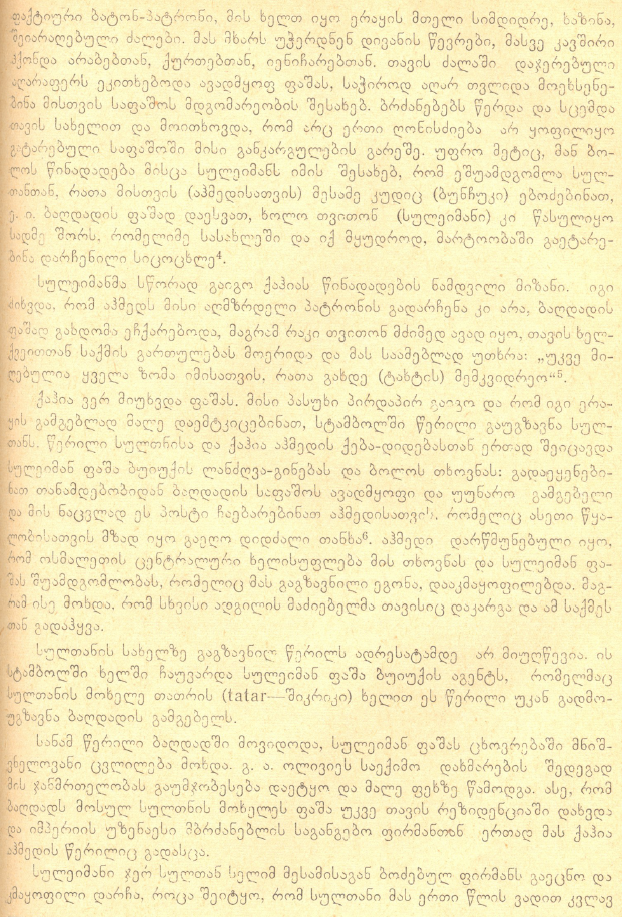 ფაქტიური ბატონ-პატრონი, მის ხელთ იყო ერაყის მთელი სიმდიდრე, ხაზინა,
შეიარაღებული ძალები. მას მხარს უჭერდნენ დივანის წევრები, მასვე კავშირი
ჰქონდა არაბებთან, ქურთებთან, იენიჩარებთან. თავის ძალაში დაჯერებული
აღარაფერს ეკითხებოდა ავადმყოფ ფაშას, საჭიროდ აღარ თვლიდა მოეხსენე-
ბინა მისთვის საფაშოს მდგომარეობის შესახებ. ბრძანებებს წერდა და სცემდა
თავის სახელით და მოითხოვდა, რომ არც ერთი ღონისძიება არ ყოფილიყო
გატარებული საფაშოში მისი განკარგულების გარეშე. უფრო მეტიც, მან ბო-
ლოს წინადადება მისცა სულეიმანს იმის შესახებ, რომ ეშუამდგომლა სულ-
თანთან, რათა მისთვის (აჰმედისათვის) მესამე კუდიც (ბუნჩუკი) ებოძებინათ,
ე. ი. ბაღდადის ფაშად დაესვათ, ხოლო თვითონ (სულეიმანი) კი წასულიყო
სადმე შორს, რომელიმე სასახლეში და იქ მყუდროდ, მარტოობაში გაეტარე-
ბინა დარჩენილი სიცოცხლე⁴.
სულეიმანმა სწორად გაიგო ქაჰიას წინადადების ნამდვილი მიზანი. იგი
მიხვდა, რომ აჰმედს მისი აღმზრდელი პატრონის გადარჩენა კი არა, ბაღდადის
ფაშად გახდომა ეჩქარებოდა, მაგრამ რაკი თვითონ მძიმედ ავად იყო, თავის ხელ-
ქვეითთან საქმის გართულებას მოერიდა და მას საამებლად უთხრა: „უკვე მი-
ღებულია ყველა ზომა იმისათვის, რათა გახდე (ტახტის) მემკვიდრეო“⁵.
ქაჰია ვერ მიუხვდა ფაშას. მისი პასუხი პირდაპირ გაიგო და რომ იგი ერა-
ყის გამგებლად მალე დაემტკიცებინათ, სტამბოლში წერილი გაუგზავნა სულ-
თანს. წერილი სულთნისა და ქაჰია აჰმედის ქება-დიდებასთან ერთად შეიცავდა
სულეიმან ფაშა ბუიუქის ლანძღვა-გინებას და ბოლოს თხოვნას: გადაეყენები-
ნათ თანამდებობიდან ბაღდადის საფაშოს ავადმყოფი და უუნარო გამგებელი
და მის ნაცვლად ეს პოსტი ჩაებარებინათ აჰმედისათვის, რომელიც ასეთი წყა-
ლობისათვის მზად იყო გაეღო დიდძალი თანხა⁶. აჰმედი დარწმუნებული იყო,
რომ ოსმალეთის ცენტრალური ხელისუფლება მის თხოვნას და სულეიმან ფა-
შას შუამდგომლობას, რომელიც მას გაგზავნილი ეგონა, დააკმაყოფილებდა. მაგ-
რამ ისე მოხდა, რომ სხვისი ადგილის მაძიებელმა თავისიც დაკარგა და ამ საქმეს
თან გადაჰყვა.
სულთანის სახელზე გაგზავნილ წერილს ადრესატამდე არ მიუღწევია. ის
სტამბოლში ხელში ჩაუვარდა სულეიმან ფაშა ბუიუქის აგენტს, რომელმაც
სულთანის მოხელე თათრის (tatar—შიკრიკი) ხელით ეს წერილი უკან გადმო-
უგზავნა ბაღდადის გამგებელს.
სანამ წერილი ბაღდადში მოვიდოდა, სულეიმან ფაშას ცხოვრებაში მნიშ-
ვნელოვანი ცვლილება მოხდა. გ. ა. ოლივიეს საექიმო დახმარების შედეგად
მის ჯანმრთელობას გაუმჯობესება დაეტყო და მალე ფეხზე წამოდგა. ასე, რომ
ბაღდადს მოსულ სულთნის მოხელეს ფაშა უკვე თავის რეზიდენციაში დახვდა
და იმპერიის უზენაესი მბრძანებლის საგანგებო ფირმანთან ერთად მას ქაჰია
აჰმედის წერილიც გადასცა.
სულეიმანი ჯერ სულთან სელიმ მესამისაგან ბოძებულ ფირმანს გაეცნო და
კმაყოფილი დარჩა, როცა შეიტყო, რომ სულთანი მას ერთი წლის ვადით კვლავ